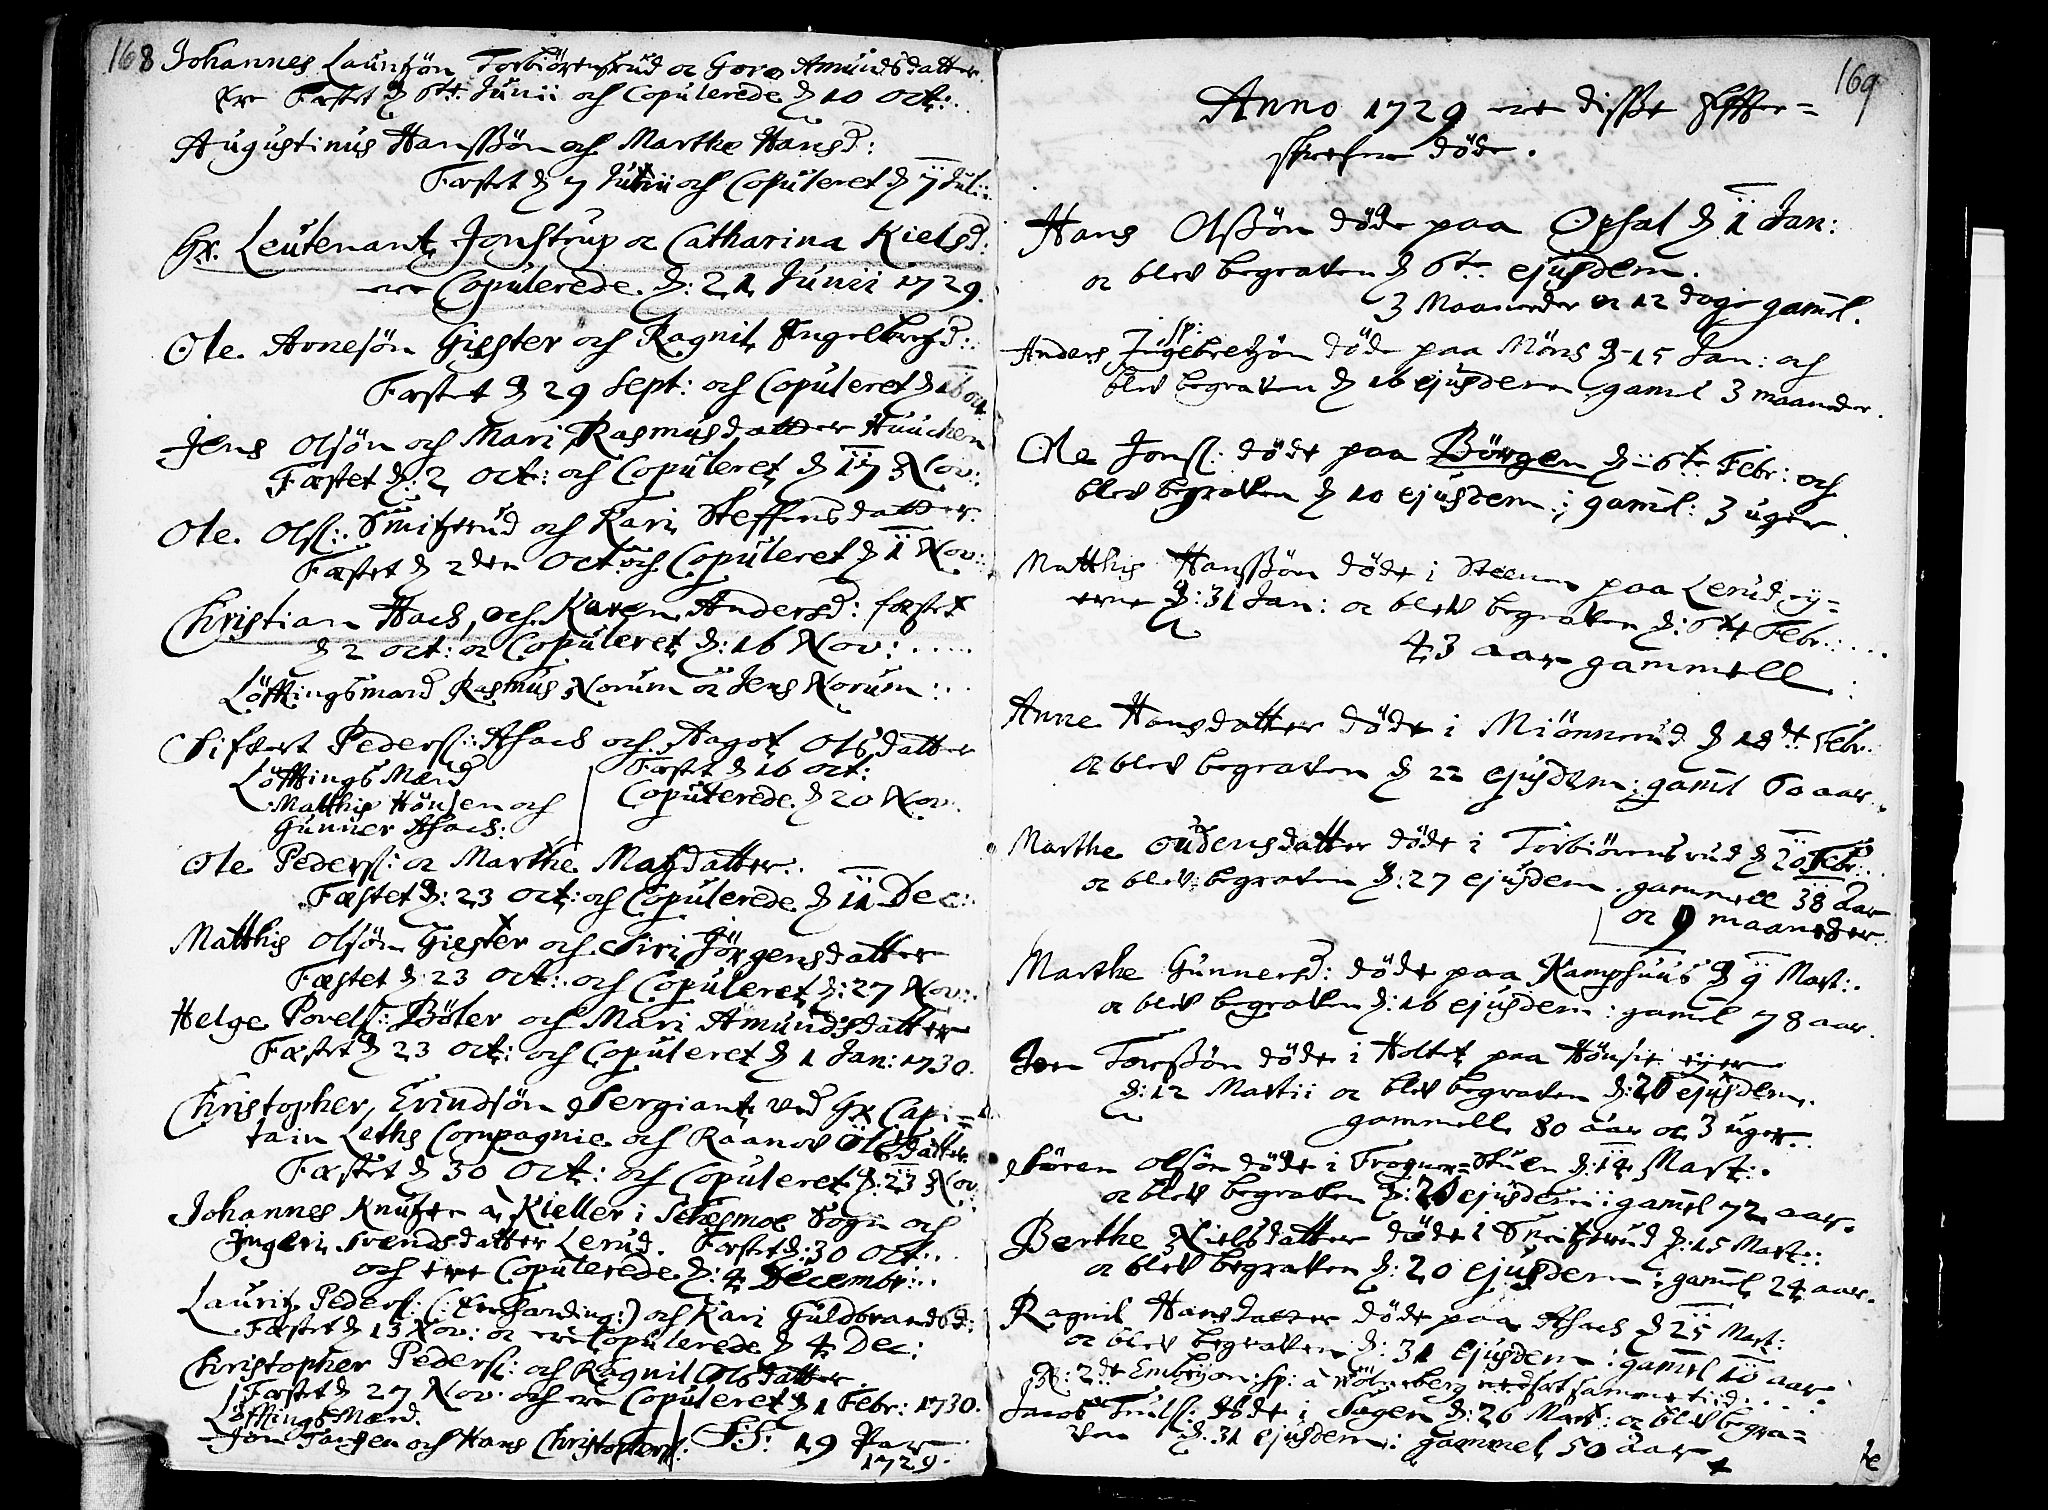 168 Johannes Laurizøn Torbiörensrud oc Goro Amundsdatter
ere Fæstet d 6te Junii och Copulerede d 10 Oct:
Augustinus Hanssøn och Marthe Hansd:
Fæstet d 7 Junii och Copuleret d 7 Julii
Hr. Leutenant Jonstrup oc Catharina Kielsd:
ere Copulerede d: 21 Junii 1729.
Ole Arnesøn Giester och Ragnil Engelbretzd:
Fæstet d 29 Sept: och Copuleret d 16 Oct.
Jens Olsøn och Mari Rasmusdatter Huuchen
Fæstet d: 2 Oct: och Copuleret d 17 Nov:
Ole Olss: Smitzrud och Kari Steffensdatter
Fæstet d 2den Oct och Copuleret d 1 Nov:
Christian Haes, och Karen Andersd: fæstet
d 2 Oct: oc Copuleret d: 16 Nov:
Löftingsmænd Rasmus Norum oc Jens Norum:
Sifvert Peders: Asach och Aagot Olsdatter
Löftings Mænd Fæstet d 16 Oct:
Matthis Hönsen och Copulerede d 20 Nov.
Gunner Asach:
Ole Peders: oc Marthe Matzdatter.
Fæstet d: 23 Oct: och Copulerede d 11 Dec:
Matthis Olsøn Giester och Siri Jörgensdatter
Fæstet d: 23 Oct: och Copuleret d: 27 Nov:
Helge Povels: Böler och Mari Amundsdatter
Fæstet d 23 Oct: och Copuleret d 1 Jan: 1730.
Christopher Erindsøn Sergiant ved Hr Capi=
tain Leths Compagnie och Raanov Olsdatter
Fæstet d 30 Oct: och Copuleret d: 23 Nov:
Johannes Knutzen a Kieller i Schesmoe Sogn och
Ingeri Svendsdatter Lerud. Fæstet d: 30 Oct:
och ere Copulerede d: 4 Decembr:
Lauritz Peders: och Kari Guldbrandsd:
Fæstet d 13 Nov: oc ere Copulerede d 4 Dec:
Christopher Peders: och Ragnil Olsdatter.
Fæstet d 27 Nov. och ere Copuleret d 1 Febr: 1730.
Löftings Mænd.
Jon Jansen och Hans Christophers: S:S: 19 Par
1729.
169
Anno 1729 ere disse Effter=
skrefne døde.
Hans Olssøn døde paa Opsal d 1 Jan:
oc blev begraven d 6te ejusdem.
3 Maaneder oc 12 dage gaml.
sp:
Anders Ingebretzøn døde paa Möns d 15 Jan: och
blev begraven d 16 ejusdem, gaml 3 maaneder.
Ole Jonss: døde paa Börgen d 6te Febr: och
blev begraven d 10 ejusdem; gaml: 3 uger.
Matthis Hanssøn døde i Steenen paa Lerud ej=
erne d: 31 Jan: oc blev begraven d: 6te Febr:
43 aar gammell.
Anne Hansdatter døde i Miönnerud d 18de Febr:
oc blev begraven d 22 ejusdem; gaml 60 aar.
Marthe Oudensdatter døde i Torbiörensrud d 20 Febr:
oc blev begraven d: 27 ejusdem. gammell 38 Aar
oc 9 maaneder.
Marthe Gunnersd: døde paa Kamphuus d 9 Mart:
oc blev begraven d: 16 ejusdem: gaml 78 aar.
Jon Torssøn døde i Holtet paa Hönsie ejer
d: 12 Martii oc blev begraven d: 20 ejusdem.
gammell 80 aar oc 3 uger.
Sören Olsøn døde i Frogner=Stuen d: 14 Mart:
oc blev begraven d: 20 ejusdem: gaml 72 aar.
Berthe Nielsdatter døde i Smitzrud d: 15 Mart:
oc blev begraven d: 20 ejusdem; gaml 24 aar.
Ragnil Hansdatter døde paa Asach d 25 Mart:
oc blev begraven d: 31 ejusdem: gaml 10 aar.
2de Embryon: sp: a nedsat samme tiid.
Jacob Truls: døde i Sagen d: 26 Mart: oc blev begra=
ven d: 31 ejusdem: gammel 50 aar